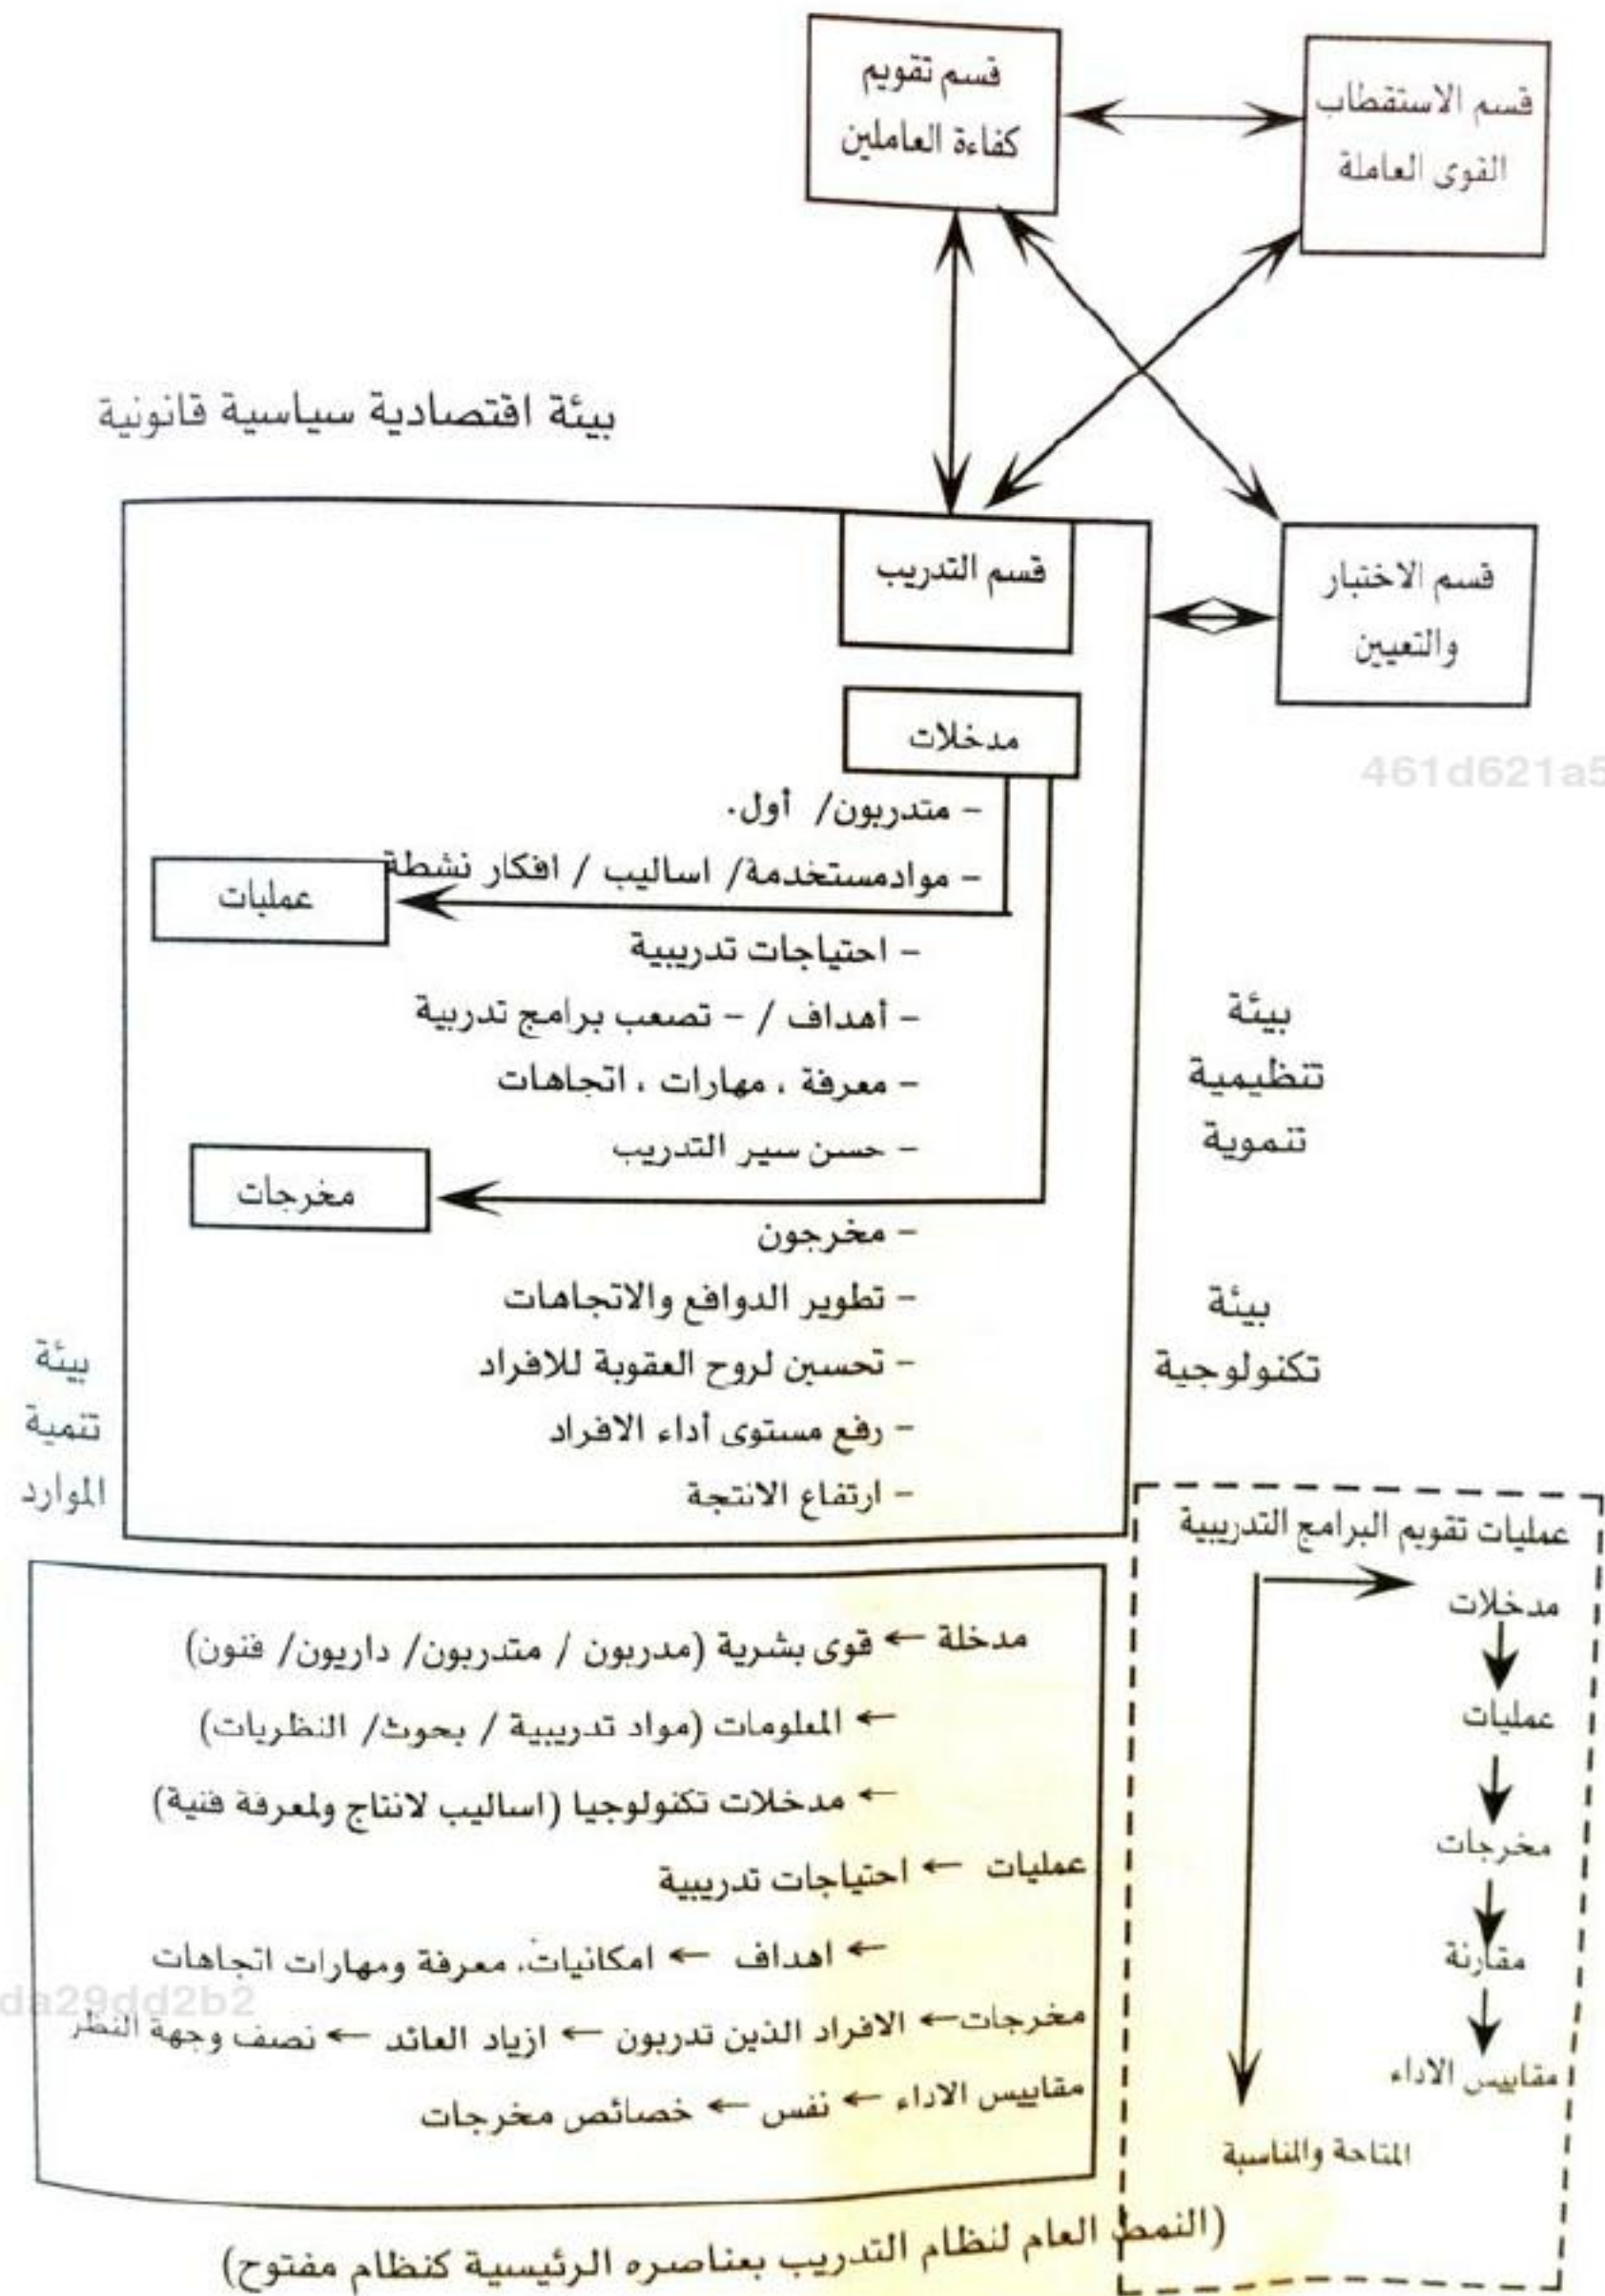 قسم تقويم
كفاءة العاملين
قسم الاستقطاب
القوى العاملة
بيئة اقتصادية سياسية قانونية
قسم التدريب
قسم الاختبار
والتعيين
مدخلات
461d621a5
- متدربون/ أول.
- موادمستخدمة/ اساليب / افكار نشطة
عمليات
- احتياجات تدريبية
- أهداف / - تصعب برامج تدربية
- معرفة ، مهارات ، اتجاهات
- حسن سير التدريب
بيئة
تنظيمية
تنموية
مخرجات
- مخرجون
- تطوير الدوافع والاتجاهات
- تحسين لروح العقوبة للافراد
- رفع مستوى أداء الافراد
- ارتفاع الانتجة
بيئة
تكنولوجية
بيئة
تنمية
الموارد
عمليات تقويم البرامج التدريبية
مدخلات
عمليات
مخرجات
مقارنة
مقاييس الاداء
المتاحة والمناسبة
مدخلة ← قوى بشرية (مدربون / متدربون/ داريون/ فنون)
← المعلومات (مواد تدريبية / بحوث/ النظريات)
← مدخلات تكنولوجيا (اساليب لانتاج ولمعرفة فنية)
عمليات ← احتياجات تدريبية
← اهداف ← امكانيات، معرفة ومهارات اتجاهات
da29dd2b2
مخرجات← الافراد الذين تدربون ← ازياد العائد ← نصف وجهة النظر
مقاييس الاداء ← نفس ← خصائص مخرجات
(النمط العام لنظام التدريب بعناصره الرئيسية كنظام مفتوح)